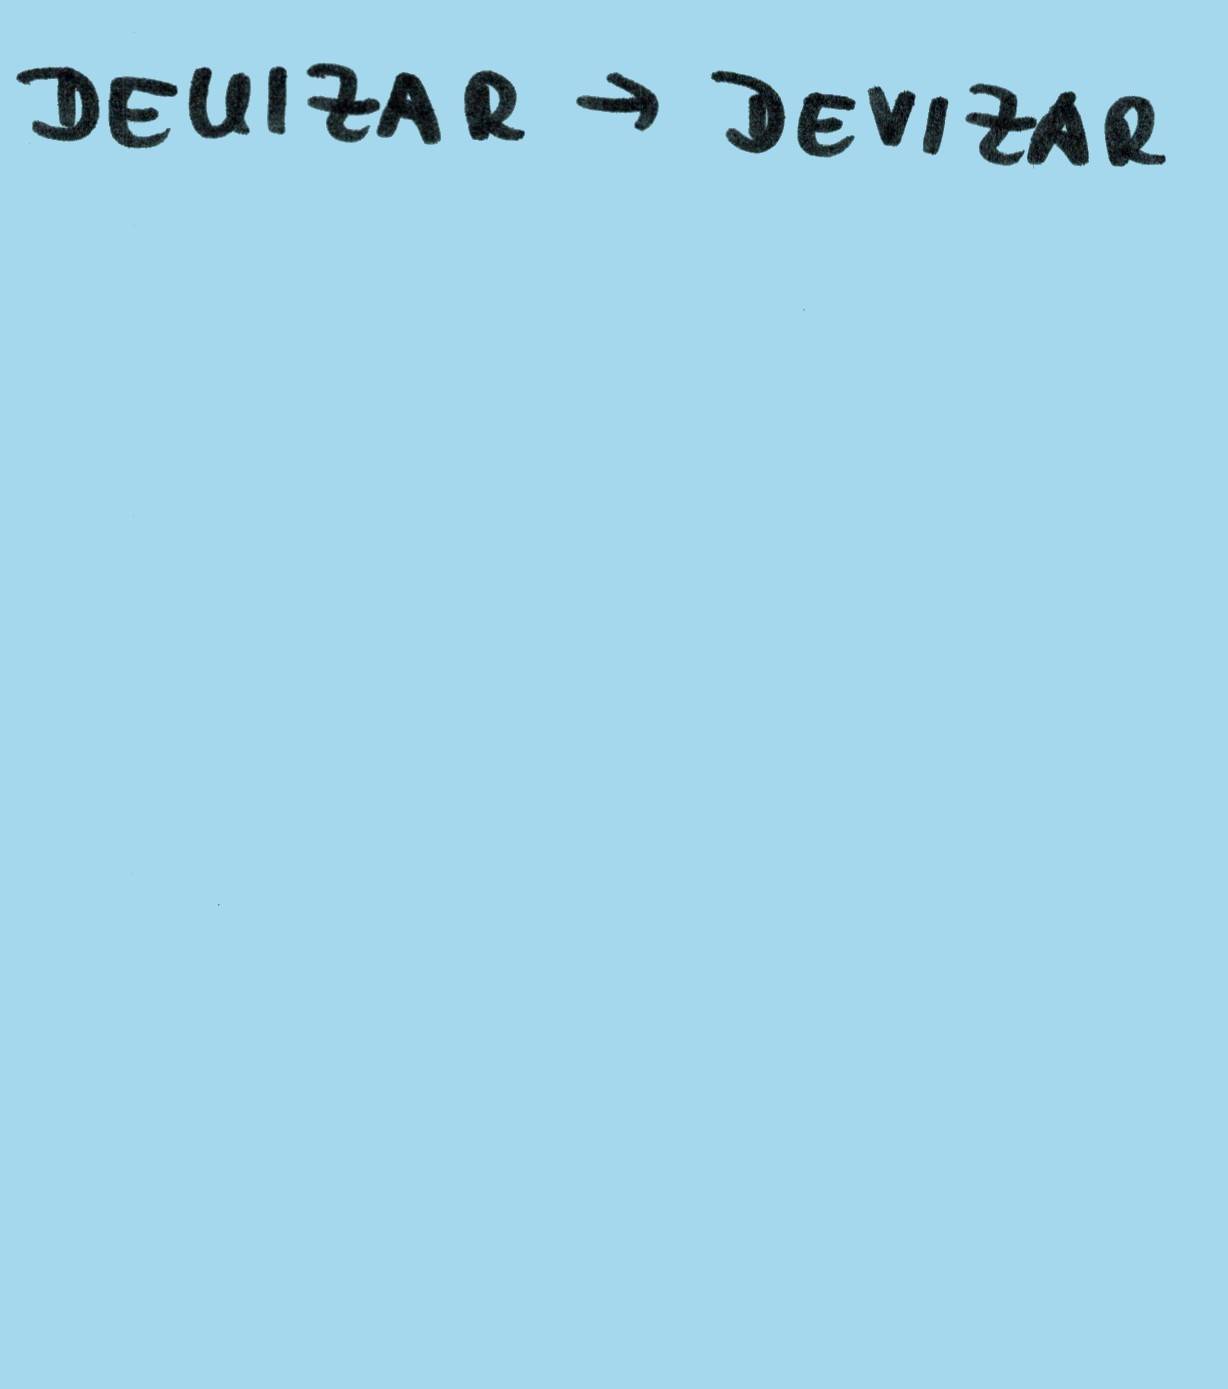 DEUIZAR → DEVIZAR